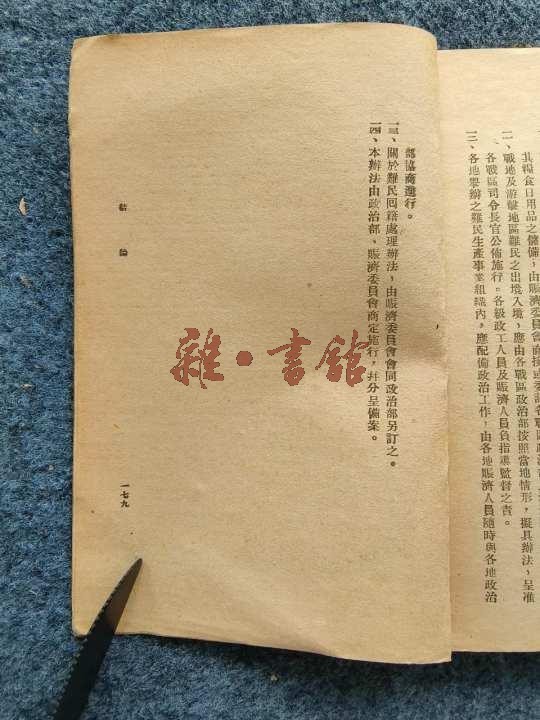 其糧食日用品之儲備,由賑濟委員會商
二、戰地及游擊地區難民之出境入境,應由各戰區政治部按照當地情形,擬具辦法,呈准
各戰區司令長官公佈施行。各級政工人員及賑濟人員負指導監督之責。
三、各地舉辦之難民生產事業組織內,應配備政治工作,由各地賑濟人員隨時與各地政治
部協商進行。
一三、關於難民回籍處理辦法,由賑濟委員會會同政治部另訂之。
一四、本辦法由政治部、賑濟委員會商定施行,幷分呈備案。
結論
一七九
雜·書館